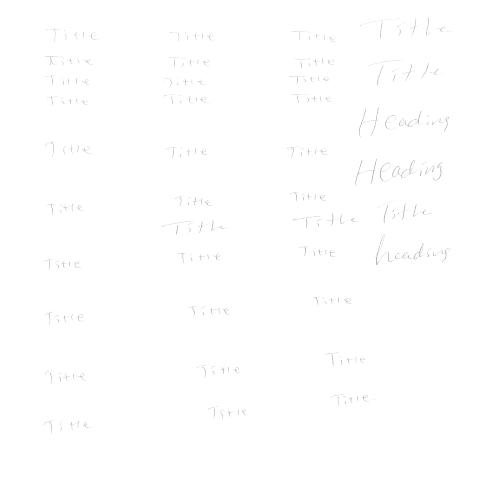 Title Title Title Title
Title Title Title Title
Title Title Title
Title Title Title
Heading
Title Title Title
Heading
Title Title Title
Title Title Title
Title Title Title heading
Title Title Title
Title Title Title
Title Title Title